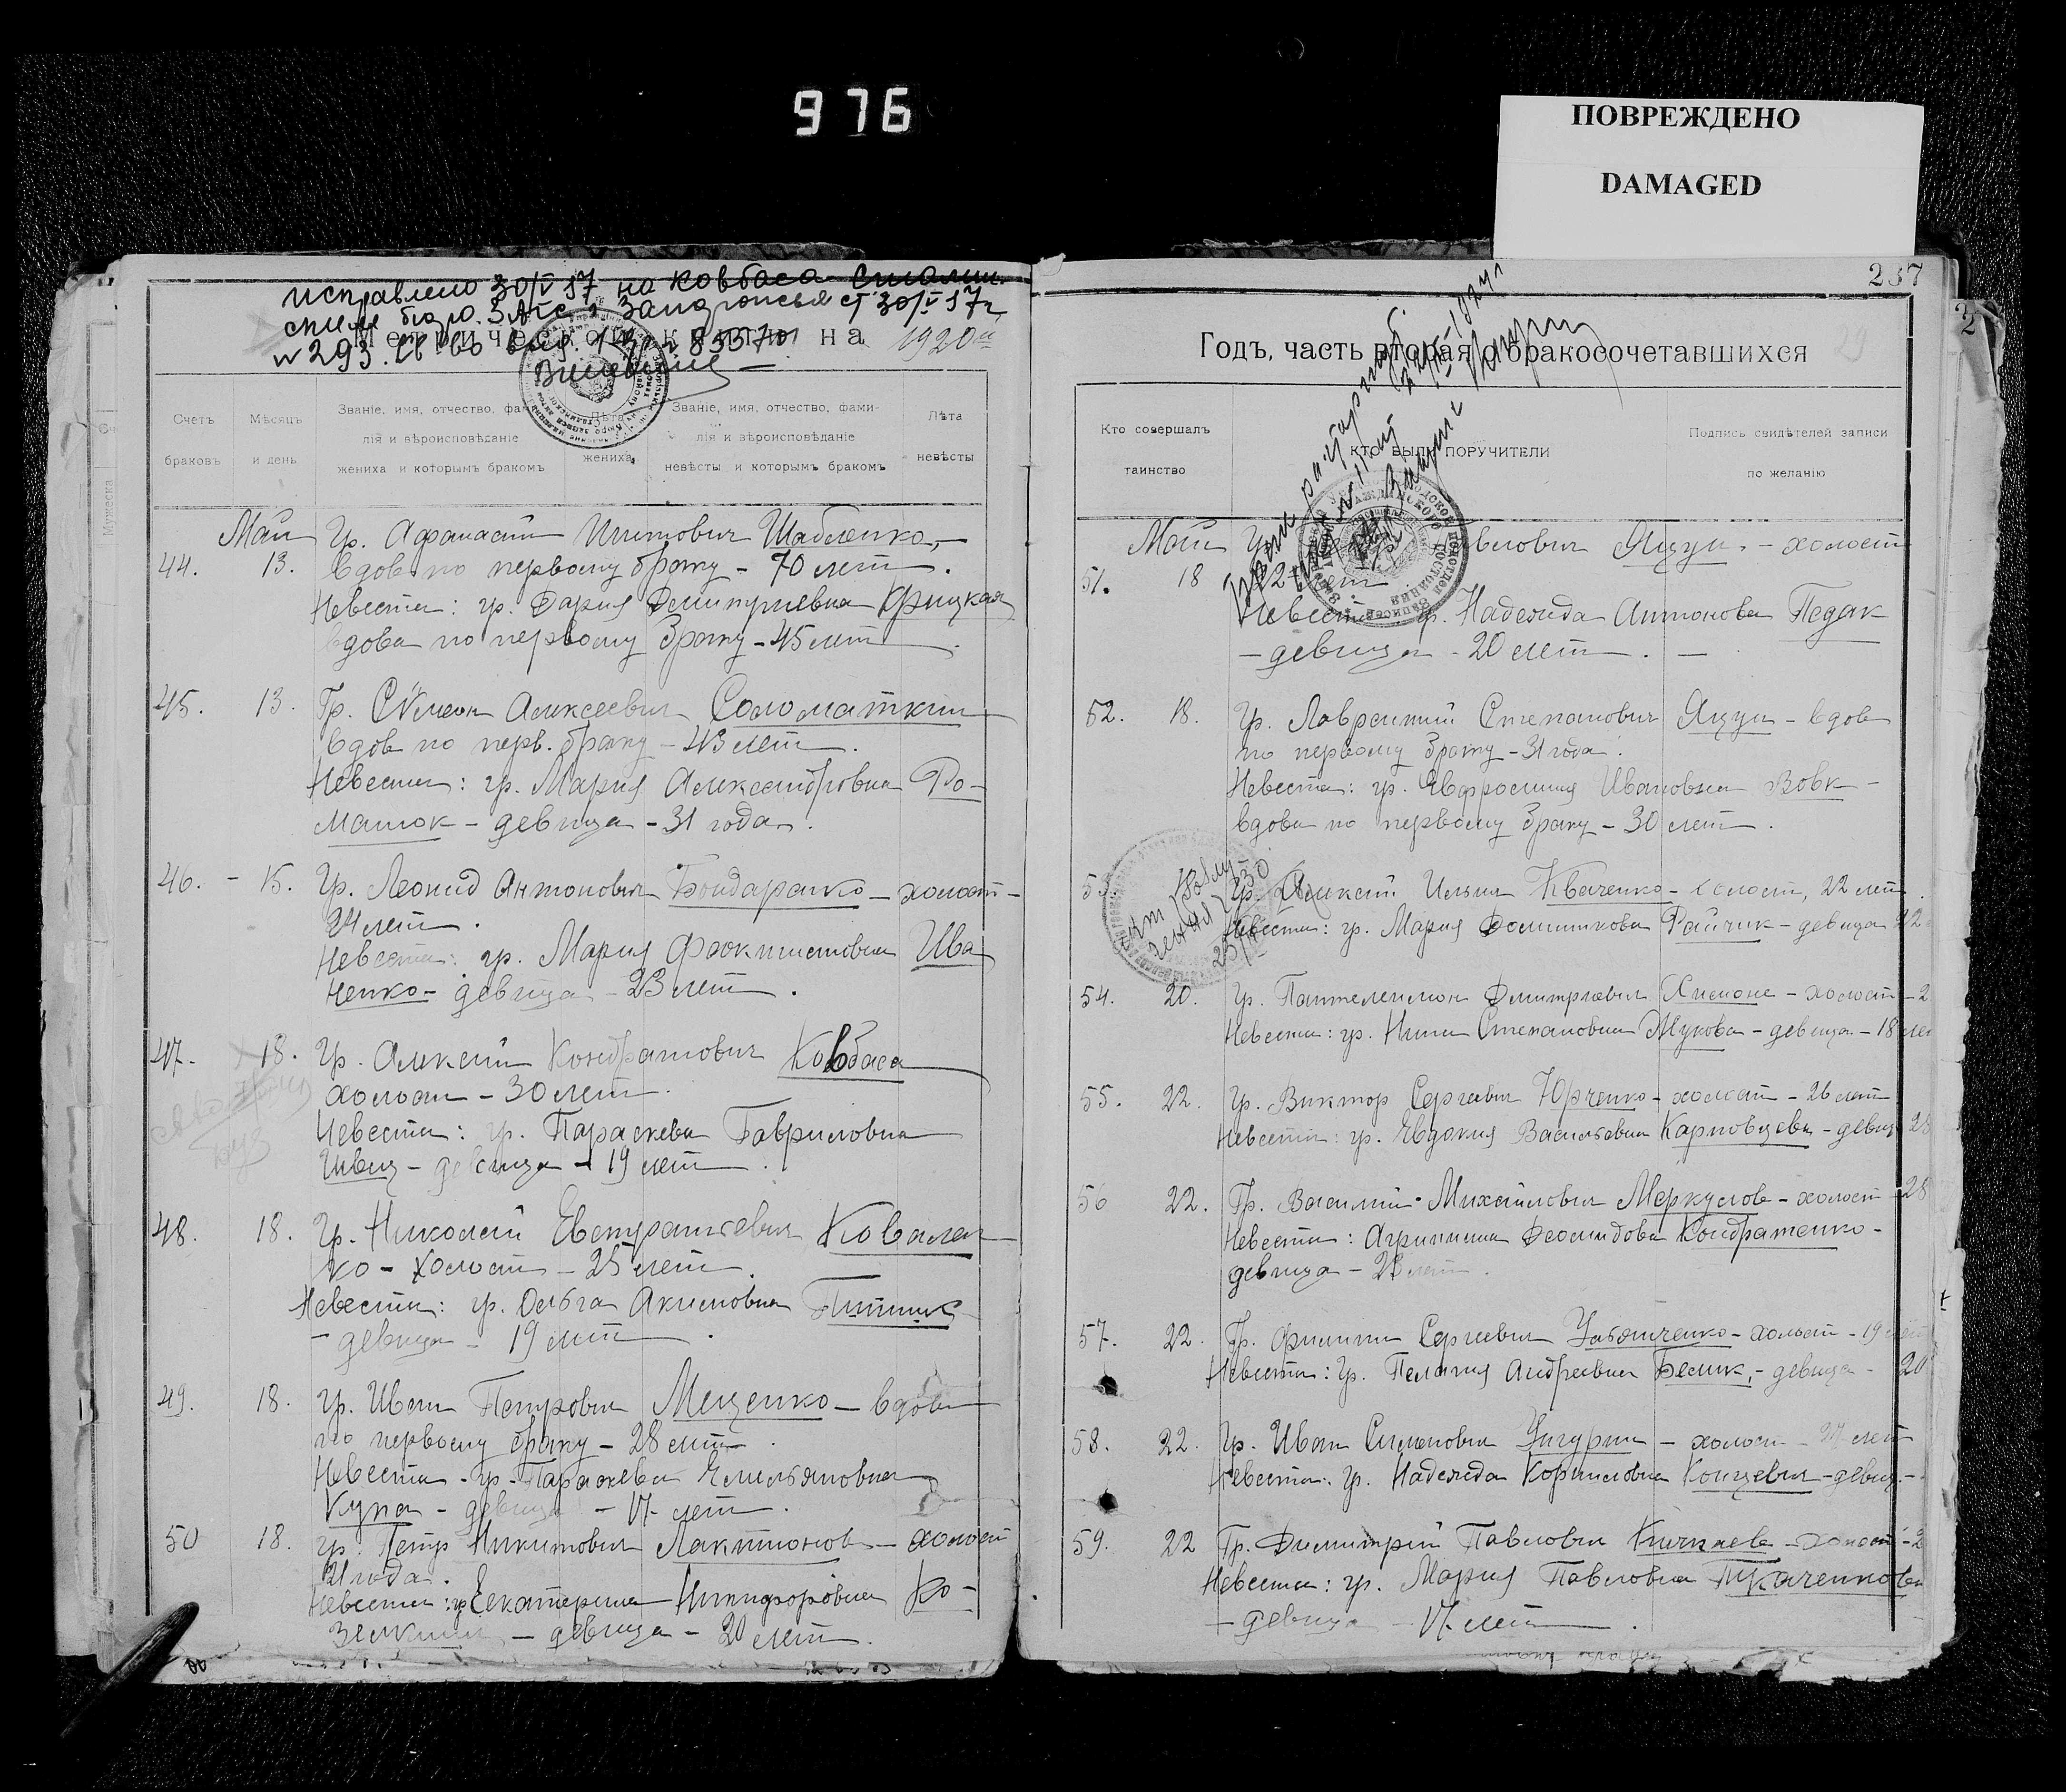 976
ПОВРЕЖДЕНО
DAMAGED
исправлено 30/V 57 на Ковбаса
бюро ЗАГС г. Запорожья от 30/V 57 г.
N 293.
Метрической книги на 1920й
Счетъ браковъ
Мѣсяцъ и день
Званіе, имя, отчество, фамилія и вѣроисповѣданіе жениха и которымъ бракомъ
Лѣта жениха
Званіе, имя, отчество, фами-
лія и вѣроисповѣданіе
невѣсты и которымъ бракомъ
Лѣта невѣсты
Май Гр. Афанасий Титович Шабленко,
44. 13. вдов по первому браку – 70 лет.
Невеста: гр. Дария Дмитриевна Крицкая
вдова по первому браку – 45 лет.
45. 13. Гр. Сѵмеон Алексеевич Соломаткин
вдов по перв. браку – 43 лет.
Невеста: гр. Мария Александровна До-
машок – девица – 31 года.
46. – 15. Гр. Леонид Антонович Бондаренко – холост –
24 лет.
Невеста: гр. Мария Феоктистовна Ива
ненко – девица – 23 лет.
47. 18. Гр. Алексей Кондратович Ковбаса
холост – 30 лет.
Невеста: гр. Параскева Гавриловна
Швец – девица – 19 лет.
48. 18. Гр. Николай Евстратиевич Ковален
ко – холост – 25 лет.
Невеста: гр. Ольга Акимовна
– девица – 19 лет.
49. 18. Гр. Иван Петрович Мещенко – вдов
по первому браку – 28 лет.
Невеста – гр. Параскева Емельяновна
Купа – девица – 17 лет.
50 18. гр. Петр Никитович Лактионов – холост
21 года.
Невеста: гр. Екатерина Никифоровна Ко-
– девица – 20 лет.
237
Годъ, часть вторая о бракосочетавшихся 29
Кто совершалъ таинство
КТО БЫЛИ ПОРУЧИТЕЛИ
Подпись свидѣтелей записи
по желанію
Май Гр. Павлович Яцун – холост
51. 18 22 лет.
Невеста гр. Надежда Антонова Педак
– девица – 20 лет. –
52. 18. Гр. Лаврентий Степанович Яцун – вдов
по первому браку – 31 года.
Невеста: гр. Евфросиния Ивановна Вовк –
вдова по первому браку – 30 лет.
53. Гр. Алексей Ильич Кваченко – холост, 22 лет.
Невеста: гр. Мария Райчик – девица 22
54. 20. Гр. Пантелеимон Дмитриевич – холост – 2
Невеста: гр. Нина Степановна Жукова – девица – 18 лет
55. 22. Гр. Виктор Сергеевич Юрченко – холост – 26 лет
Невеста: гр. Евдокия Васильевна Карповцева – девиц 28
56 22. Гр. Василий Михайлович Меркулов – холост – 28
Невеста: Агрипина Деомидова Кондратенко –
девица – 28 лет.
57. 22. Гр. Филипп Сергеевич – холост – 19 лет
Невеста: Гр. Пелагия Андреевна Белик, – девица – 20
58. 22. Гр. Иван Симонович – холост – 27 лет
Невеста: Гр. Надежда Корниловна Концевич – девиц. –
59. 22 Гр. Димитрий Павлович Кичкаев – холост – 2
Невеста: гр. Мария Павловна Ткаченкова
– девица – 17 лет.